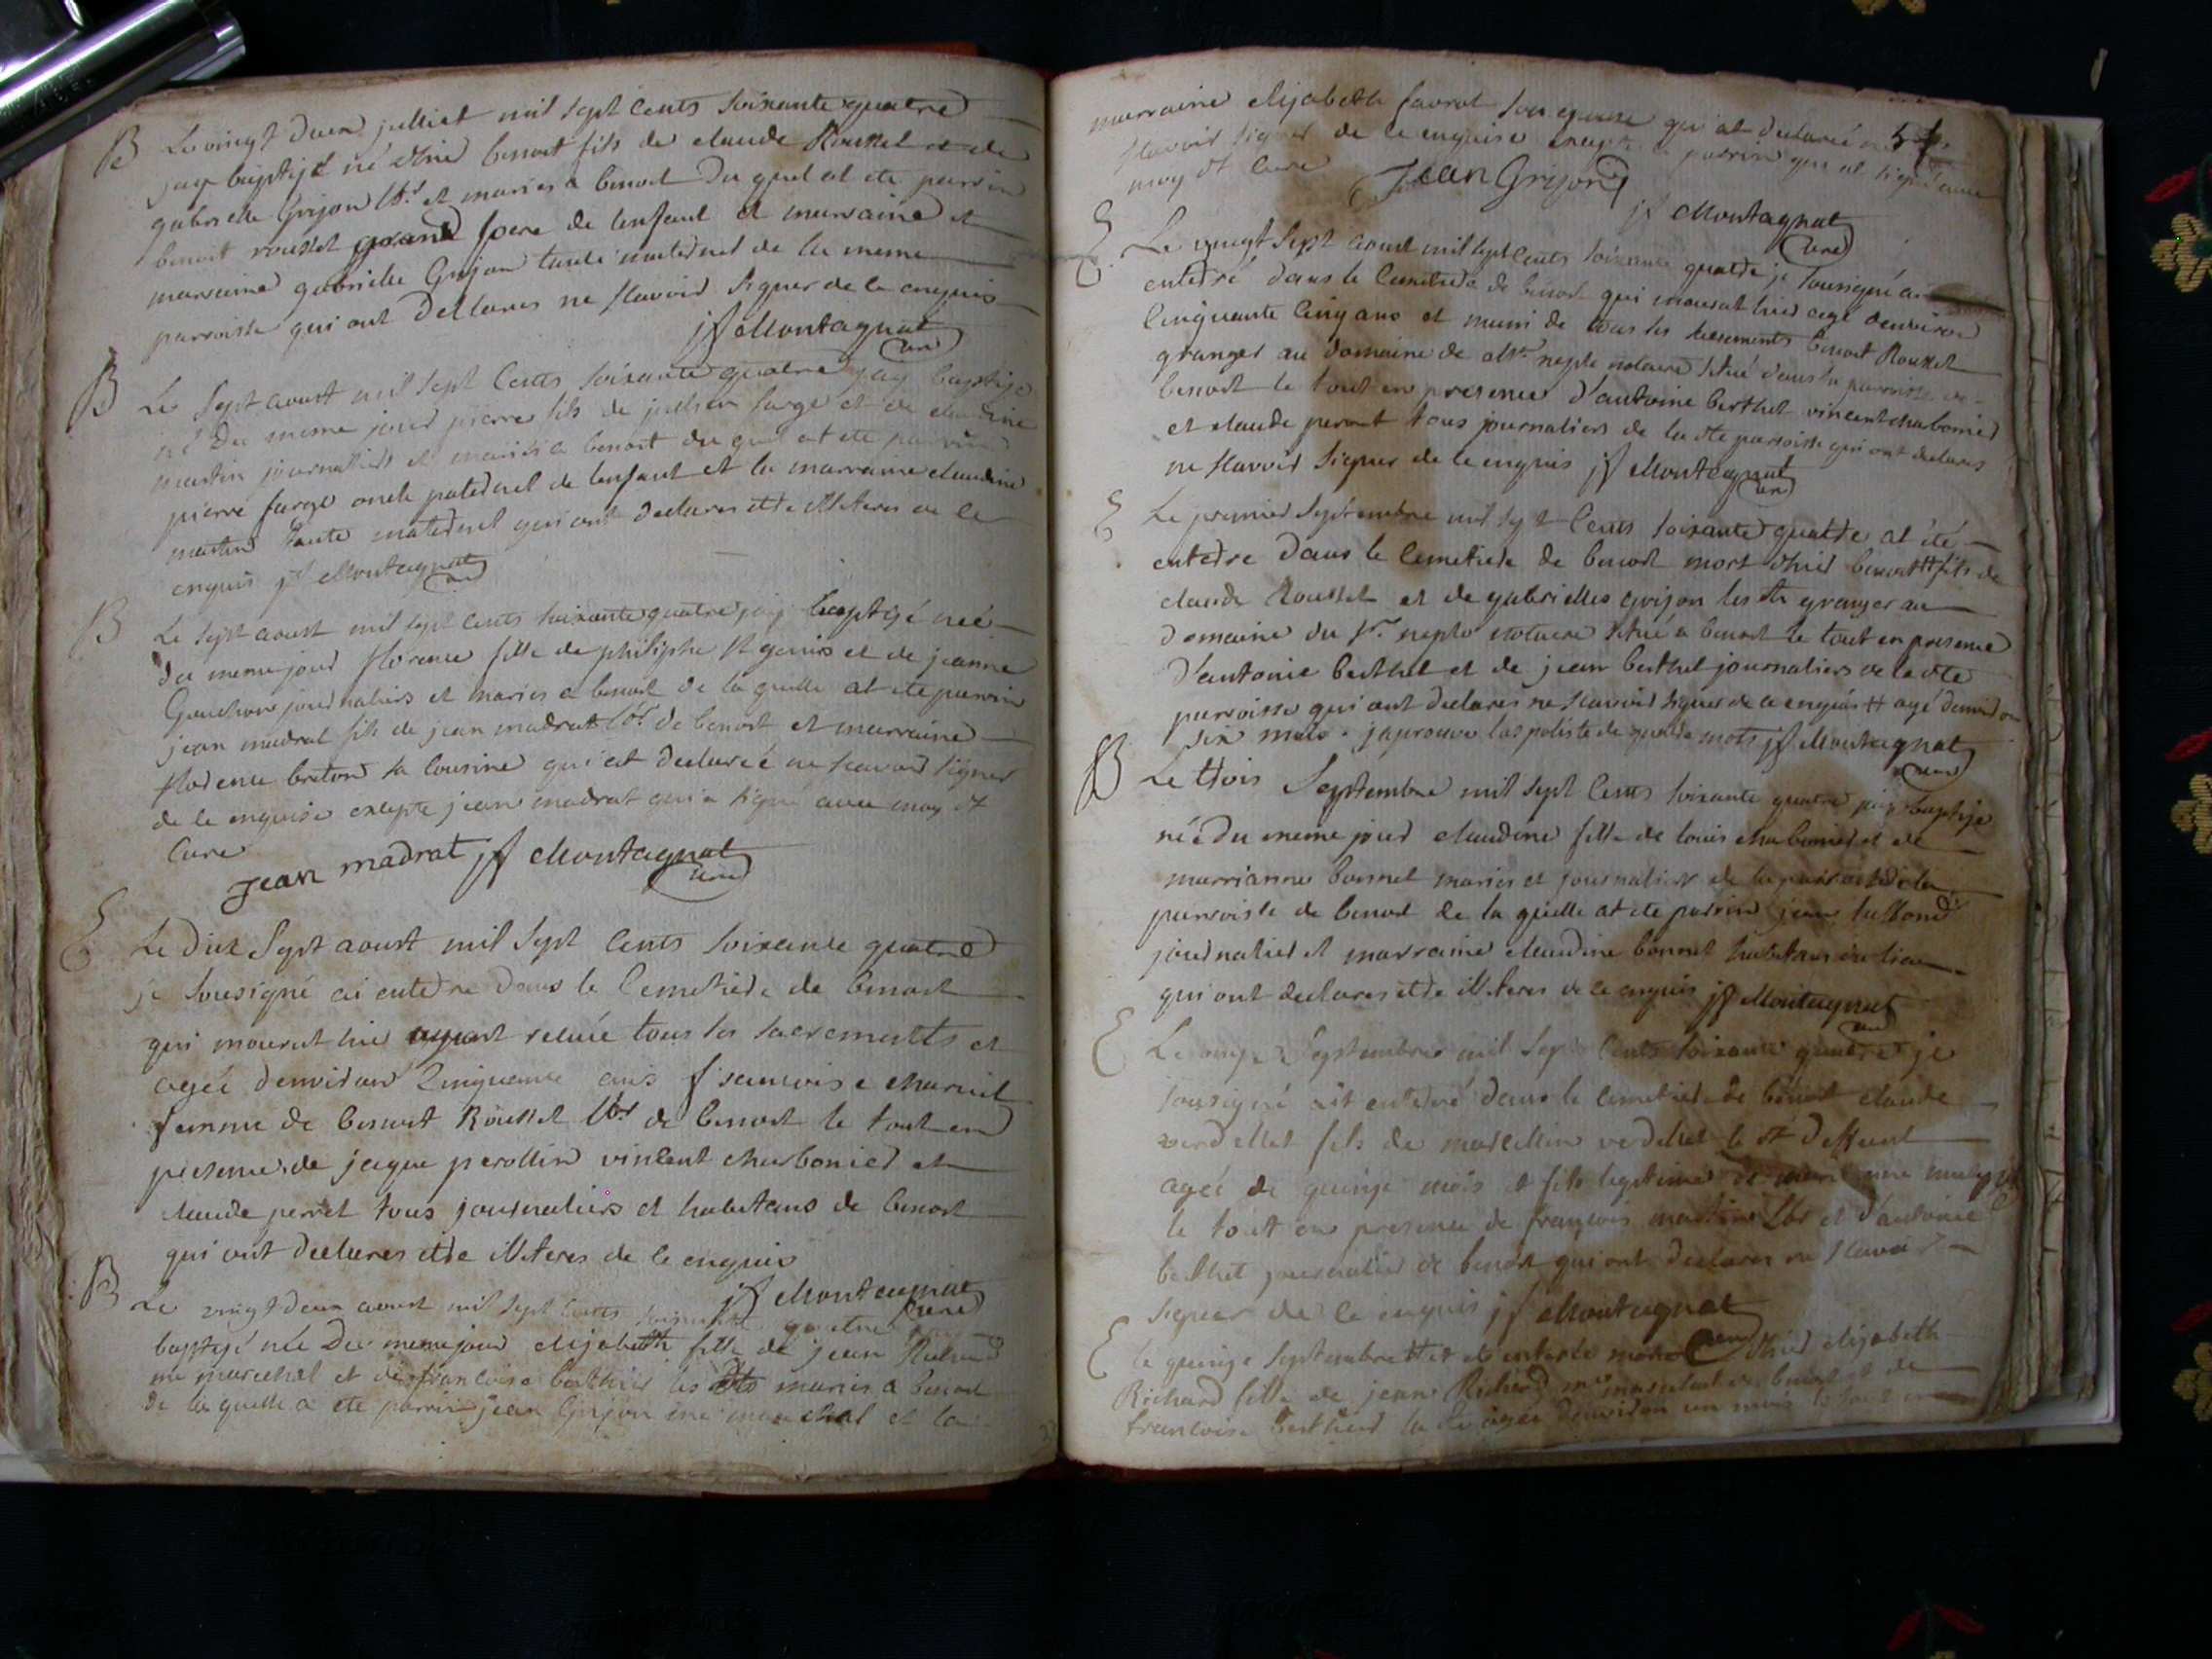 B Le vingt deux julliet mil sept cents soixante quatre
jay baptisé né d'hier benoit fils de claude Roussel et de
gabrielle Grijon lbrs et mariés a benost du quel at ete parrin
benoit roussel grand pere de lenfant et marraine et
marraine gabrielle Grijon tante maternel de la meme
parroisse qui ont dellarés ne scavoir signer de ce enquis
jf Montagnat
curé
B Le sept aoust mil sept cents soixante quatre jay baptisé
né du meme jour pierre fils de jullien farge et de claudine
martin journaliers et mariés a benost du quel at ete parrin
pierre farge oncle paternel de lenfant et la marraine claudine
martin tante maternel qui ont declarés etre illiteres de ce
enquis jf Montagnat
curé
B Le sept aoust mil sept cents soixante quatre jay baptisé née
du meme jour florence fille de philiphe st genis et de jeanne
Gonchon journaliers et mariés a benost de la quelle at ete parrin
jean madrat fils de jean madrat lbr de benost et marraine
florence breton sa cousine qui at declareé ne scavoir signer
de ce enquise excepte jean madrat qui a signé avec moy dt
curé
Jean madrat jf Montagnat
curé
E Le dix sept aoust mil sept cents soixante quatre
je sousigné ai enterre dans le cemetiere de benost
qui mourut hié ayant relue tous les sacrements et
ageé denviron cinquante ans francoise chareil
femme de benoit Roussel lbr de benost le tout en
presence de jaque perollin vincent charbonier et
claude perret tous journaliers et habitans de benost
qui ont declarés etre illiteres de ce enquis
jf Montagnat
curé
B Le vingt deux aoust mil sept cents soixante quatre jay
baptisé née du meme jour elisabeth fille de jean Richard
me marechal et de francoise berthier les dts mariés a benost
de la quelle a ete parrin jean Grijon me marechal et la
marraine elisabeth favrot son epouse qui at declareé ne 54
scavoir signer de ce enquise excepté le parrin qui at signé avec
moy dt curé
Jean Grijon
jf Montagnat
curé
E Le vingt sept aoust mil sept cents soixante quatre je sousigné ai
enterré dans le cemetiere de benost qui mourut hier agé denviron
cinquante cinq ans et muni de tous les sacrements benoit Roussel
granger au domaine de Mr neple notaire situé dans la parroisse de
benost le tout en presence d'antoine berthet vincent charbonier
et claude perret tous journaliers de la dte parroisse qui ont declarés
ne scavoir signer de ce enquis jf Montagnat
curé
E Le premier septembre mil sept cents soixante quatre at été
enterre dans le cemetiere de benost mort d'hier benoit # fils de
claude Roussel et de gabrielles grijon les dts granger au
domaine du sr neple notaire situé a benost le tout en presence
d'antonie berthet et de jean berthet journaliers de la dte
parroisse qui ont declarés ne scavoir signer de ce enquis # agé denviron
six mois japrouve lapostiste de quatre mots jf Montagnat
curé
B Le trois septembre mil sept cents soixante quatre jay baptisé
née du meme jour claudine fille de louis charbonier et de
marrianne bonnet mariés et journaliers de la
parroisse de benost de la quelle at ete parrin jean
journalier et marraine claudine bonnet habitans du lieu
qui ont declarés etre illiteres de ce enquis jf Montagnat
curé
E Le septembre mil sept cents soixante quatre je
sousigné ait enterré dans le cemetiere de benost claude
verdellet fils de marcellin verdellet le dt deffunt
agéé de quinze mois et fils legitime de
le tout en presence de francois martin lbr et d'antonie
berthet journalier de benost qui ont declarés ne scavoir
signer de ce enquis jf Montagnat
curé
E le quinze septembre # et ete enterreé d'hier elisabeth
Richard fille de jean Richard me marechal de benost et de
francoise berthier la dte ageé denviron un mois le tout en